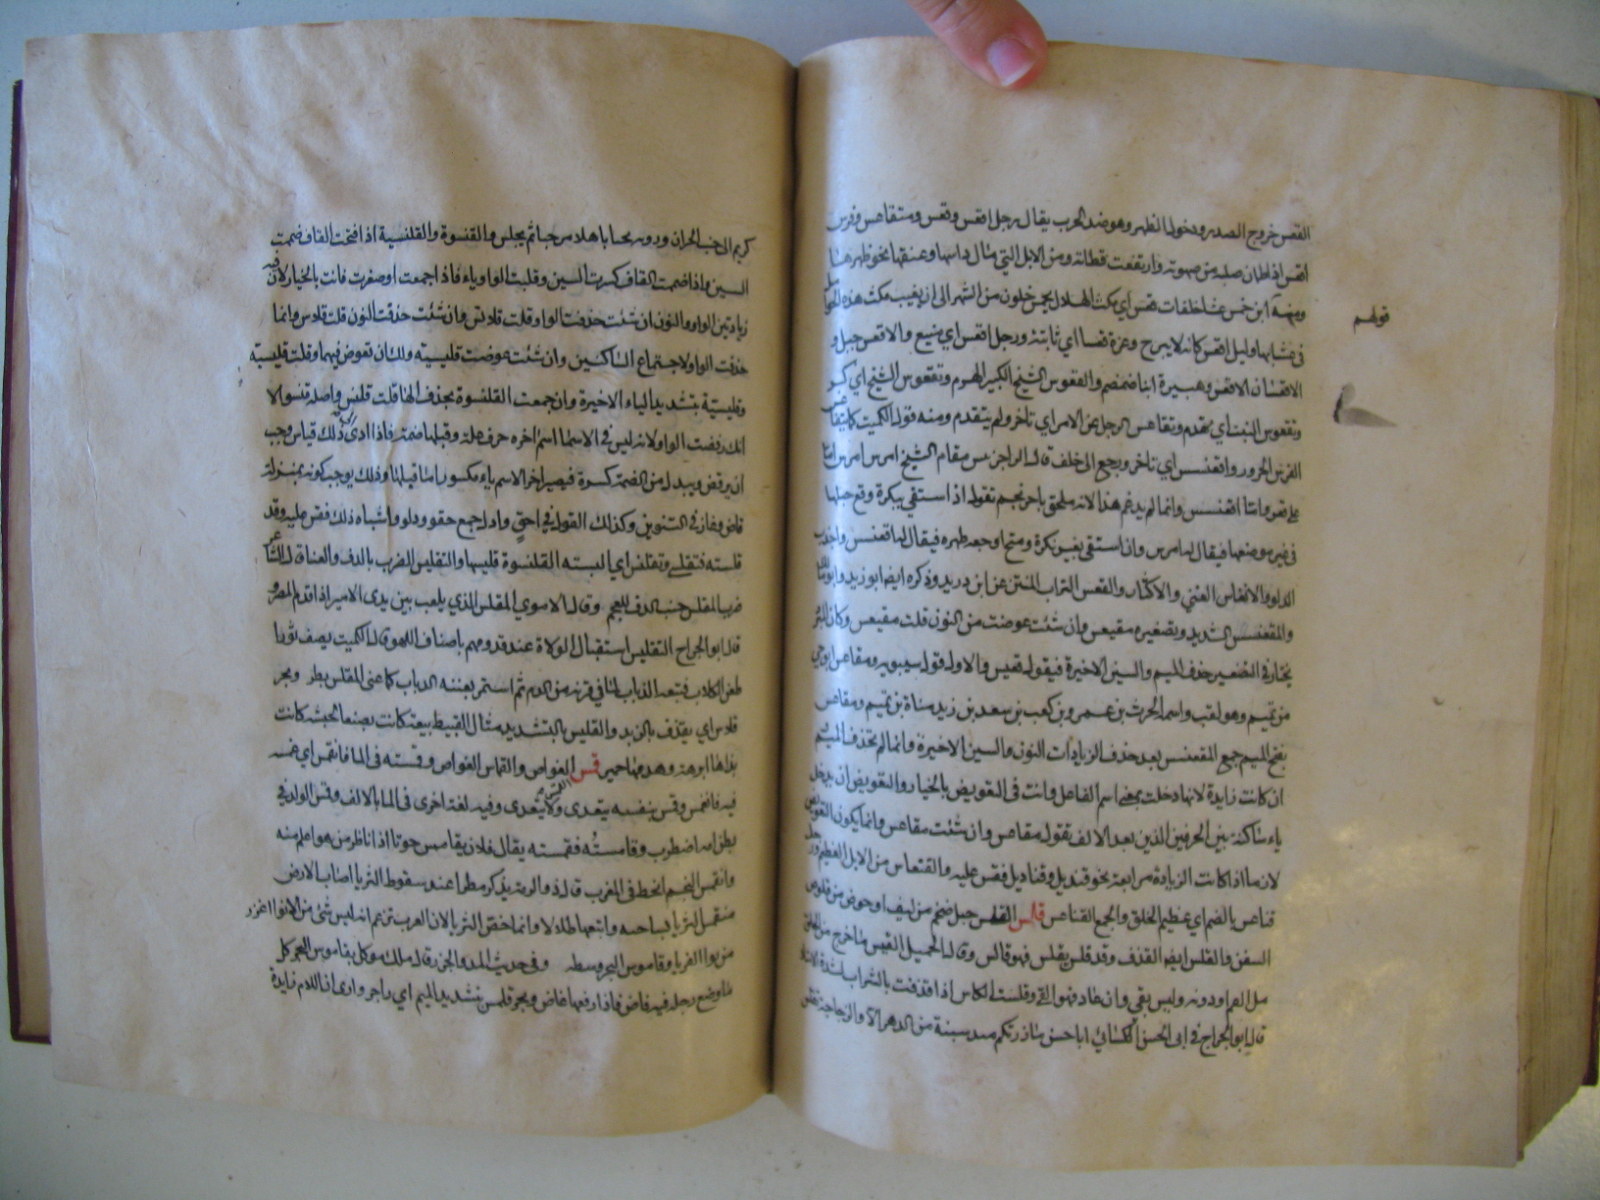 القعس خروج الصدر ودخول الظهر وهو ضد الحدب يقال رجل اقعس وقعس ومتقاعس وفرس
اقعس اذا اطمان صلبه من صهوته وارتفعت قطاته ومن الابل التي مال راسها وعنقها نحو ظهرها
ومنه ابن خمس عشا خلفات قعس اي مكث الهلال بخمس خلون من الشهر الى ان يغيب مكث هذه الحوامل
قولهم
في عشايها وليل اقعس كانه لا يبرح وعزة قعسا اي ثابتة ورجل اقعس اي منيع والاقعس جبل و
الاقعسان الاقعس وهبيرة ابنا ضمضم والقعوس الشيخ الكبير الهرم وتقعوس الشيخ اي كبر
وتقاعس الرجل عن الامر اي تاخر ولم يتقدم ومنه قول الكميت كما يتقاعس
الفرس الحرور واقعنسس اي تاخر ورجع الى خلف قال الراجز بئس مقام الشيخ امرس امرس اما
على قعو واما اقعنسس وانما لم يدغم هذا لانه ملحق باحرنجم تقول اذا استقي ببكرة وقع حبلها
في غير موضعها فيقال له امرس وان استقى بغير بكرة ومتح اوجعه ظهره فيقال له اقعنسس واجذب
الدلو والاقعاس الغنى والاكثار والقعس التراب المنتن عن ابن دريد وذكره ايضا ابو زيد وابو مالك
والمقعنسس الشديد وتصغيره مقيعس وان شئت عوضت من النون قلت مقيعيس وكان المبرد
يختار في التصغير حذف الميم والسين الاخيرة فيقول قعيس والاول قول سيبويه ومقاعس ابو حي
من تميم وهو لقب واسمه الحرث بن عمرو بن كعب بن سعد بن زيد مناة بن تميم ومقاعس
بفتح الميم جمع المقعنسس بعد حذف الزيادات النون والسين الاخيرة وانما لم تحذف الميم
ان كانت زايدة لانها دخلت بمعنى اسم الفاعل وانت في التعويض بالخيار والتعويض ان يدخل
ياء ساكنة بين الحرفين الذين بعد الالف تقول مقاعس وان شئت مقاعيس وانما يكون التعويض
لازما اذا كانت الزيادة رابعة نحو قنديل وقناديل فقس عليه والقنعاس من الابل العظيم ورجل
قناعس بالضم اي عظيم الخلق والجمع القناعس قلس القلس حبل ضخم من ليف او خوص من قلوص
السفن والقلس ايضا القذف وقد قلس يقلس فهو قالس وقال الخليل القلس ما خرج من الحلق
مل الفم او دونه وليس بقي وان عاد فهو القي وقلست الكاس اذا قذفت بالشراب لشدة الامتلا
قال ابو الجراح في ابي الحسن الكسائي ابا حسن ما زرتكم منذ سنبة من الدهر الا والزجاجة تقلس
كريم الى جنب الخوان وزوره يحيا باهلا مرحبا ثم يجلس والقنسوة والقلنسية اذا فتحت القاف ضمت
السين واذا ضممت القاف كسرت السين وقلبت الواو ياء فاذا جمعت او صغرت فانت بالخيار لان فيه
زيادتين الواو والنون ان شئت حذفت الواو قلت قلانس وان شئت حذفت النون قلت قلاس وانما
حذفت الواو لاجتماع الساكنين وان شئت عوضت قليسية ولك ان تعوض فيهما وقلت قلينسية
وقليسية بتشديد الياء الاخيرة وان جمعت القلنسوة بحذف الها قلت قلنس واصله قلنسو الا
انك رفضت الواو لانه ليس في الاسما اسم اخره حرف علة وقبلها ضمة فاذا ادى الى ذلك قياس وجب
ان يرفض ويبدل من الضمة كسرة فيصير اخر الاسم ياء مكسورا ما قبلها وذلك يوجب كونه بمنزلة
قاض وغاز في التنوين وكذلك القول في احق وادل جمع حقو ودلو واشباه ذلك فقس عليه وقد
قلسته فتقلسى وتقلنس اي البسته القلنسوة فلبسها والتقليس الضرب بالدف والغناء قال الشاعر
ضرب المقلس جنب الدف للعجم وقال الاموي المقلس الذي يلعب بين يدى الامير اذا قدم المصر
قال ابو الجراح التقليس استقبال الولاة عند قدومهم باصناف اللهو قال الكميت يصف ثورا
طعن الكلاب فتبعه الذباب لما في قرنه من الدم ثم استمر يغنيه الذباب كما غنى المقلس بطر وبحر
قلاس اي يقذف بالزبد والقليس بالتشديد مثال القبيط بيعة كانت بصنعا للحبشة كانت
بناها ابرهة وهدمها حمير قمس الغواص والقماس الغواص وقمسته في الما فانقمس اي غمسه
القمس
فيه فانغمس وقمس بنفسه يتعدى ولا يتعدى وفيه لغة اخرى في الما بالالف وقمس الولد في
بطن امه اضطرب وقامسته فقمسته يقال فلان يقامس حوتا اذا ناظر من هو اعلم منه
وانقمس النجم انحط في المغرب قال ذو الرمة يذكر مطرا عند سقوط الثريا اصاب الارض
منقمس الثريا بساحية واتبعها طلالا وانما خص الثريا لان العرب تزعم انه ليس شئ من الانوا اغزر
من نوا الثريا وقاموس البحر وسطه وفي حديث المد والجزر قال ملك موكل بقاموس البحر كل
ما وضع رجله فيه فاض فاذا رفعها غاض وبحر قلمس بتشديد الميم اي زاخر وارى ان اللام زايدة